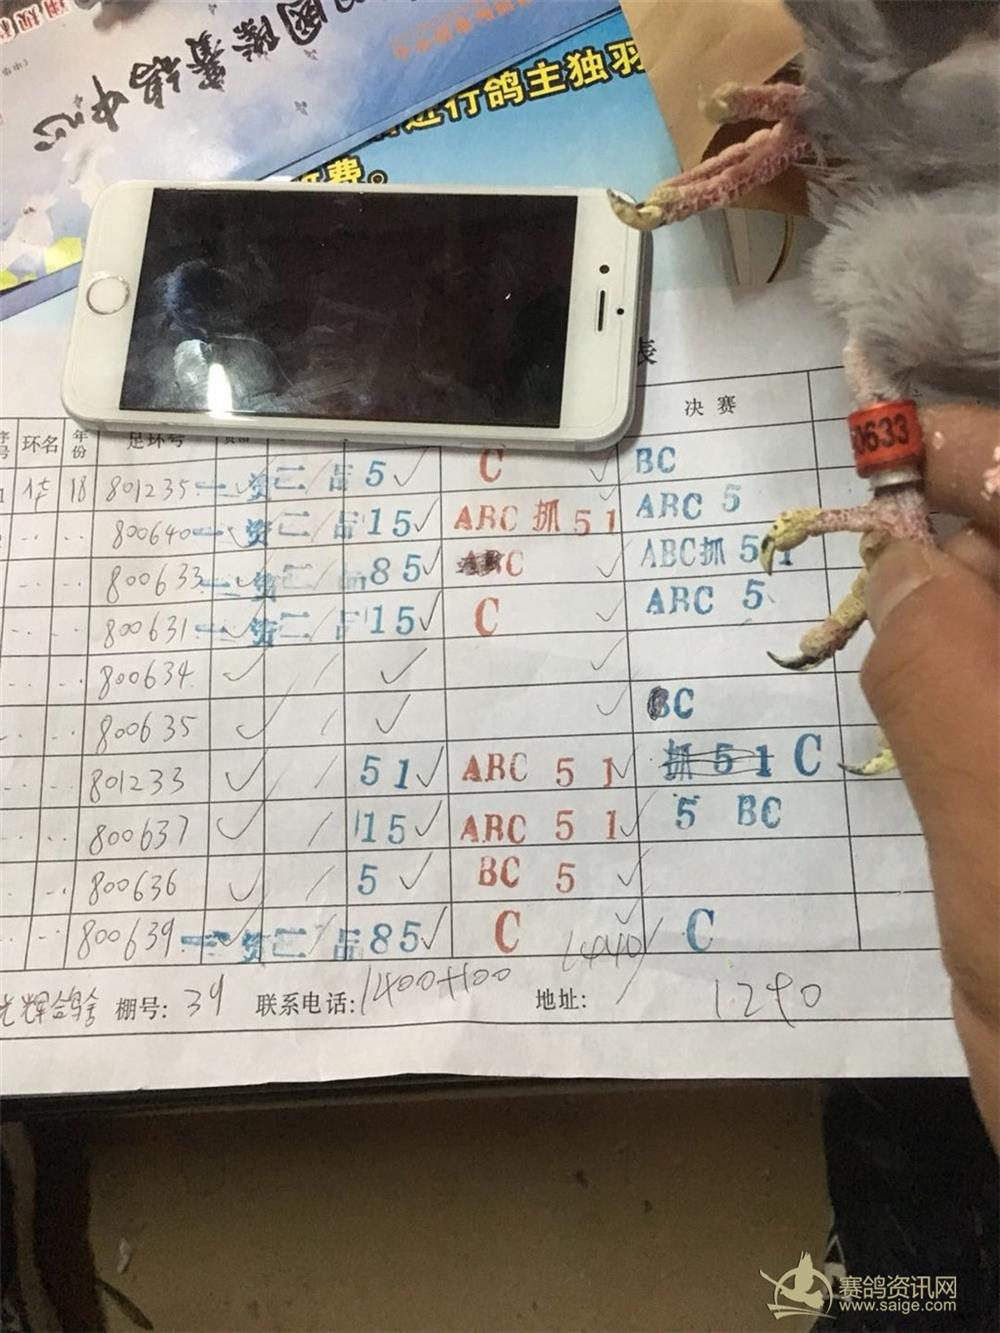 國際賽鸽中心
进行鸽主独羽
费。
表
号 环名 年份 足环号 决赛
18 801235 一资二/品 5 ✓ C ✓ BC
800640 一资二/品 15 ✓ ABC 抓 51 ABC 5
800633 一资二/品 85 ✓ C ✓ ABC抓 51
800631 一资二/品 15 ✓ C ✓ ABC 5
800634 ✓ / ✓ ✓
800635 ✓ / ✓ ✓ BC
801233 ✓ / 51 ✓ ABC 51 ✓ 抓 51 C
800637 ✓ / 15 ✓ ABC 51 ✓ 5 BC
800636 ✓ / 5 ✓ BC 5 ✓
800639 资二/品 85 ✓ C ✓ C
光辉鸽舍 棚号: 39 联系电话: 1400+100 地址: 1290
0633
赛鸽资讯网
www.saige.com